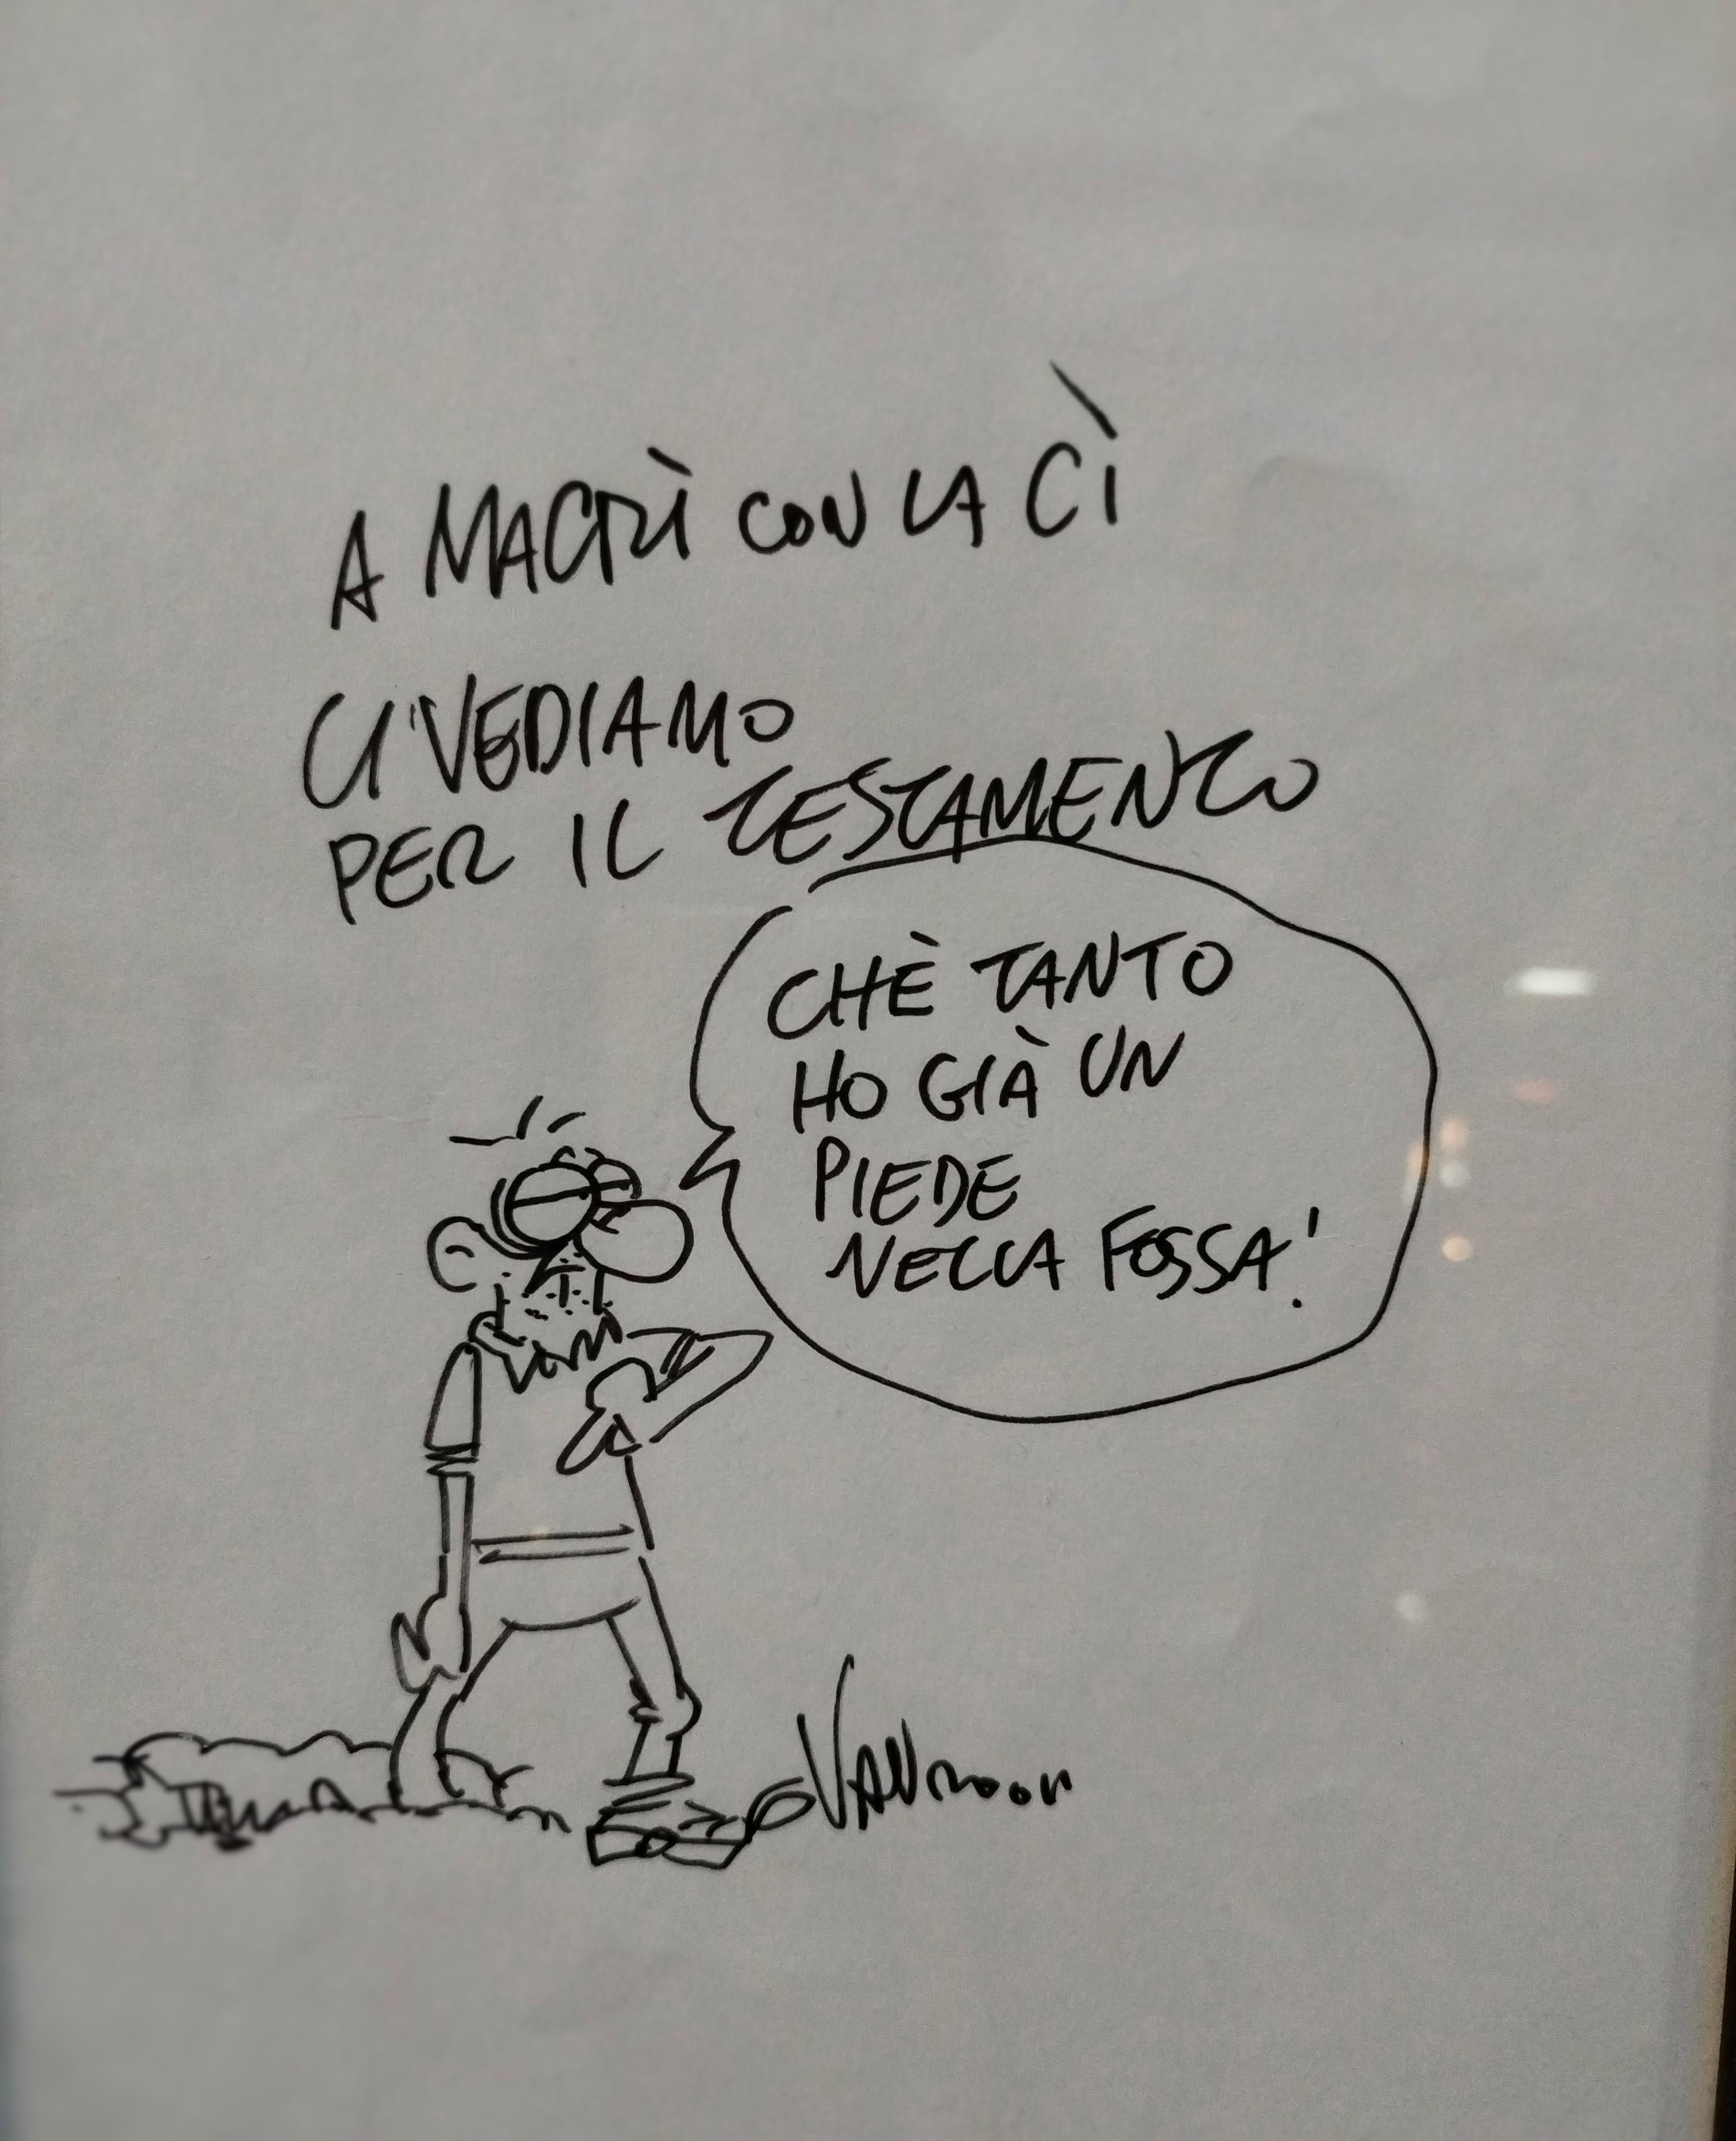 A MACRÌ CON LA CÌ
CI VEDIAMO
PER IL TESTAMENTO
CHÈ TANTO
HO GIÀ UN
PIEDE
NELLA FOSSA!